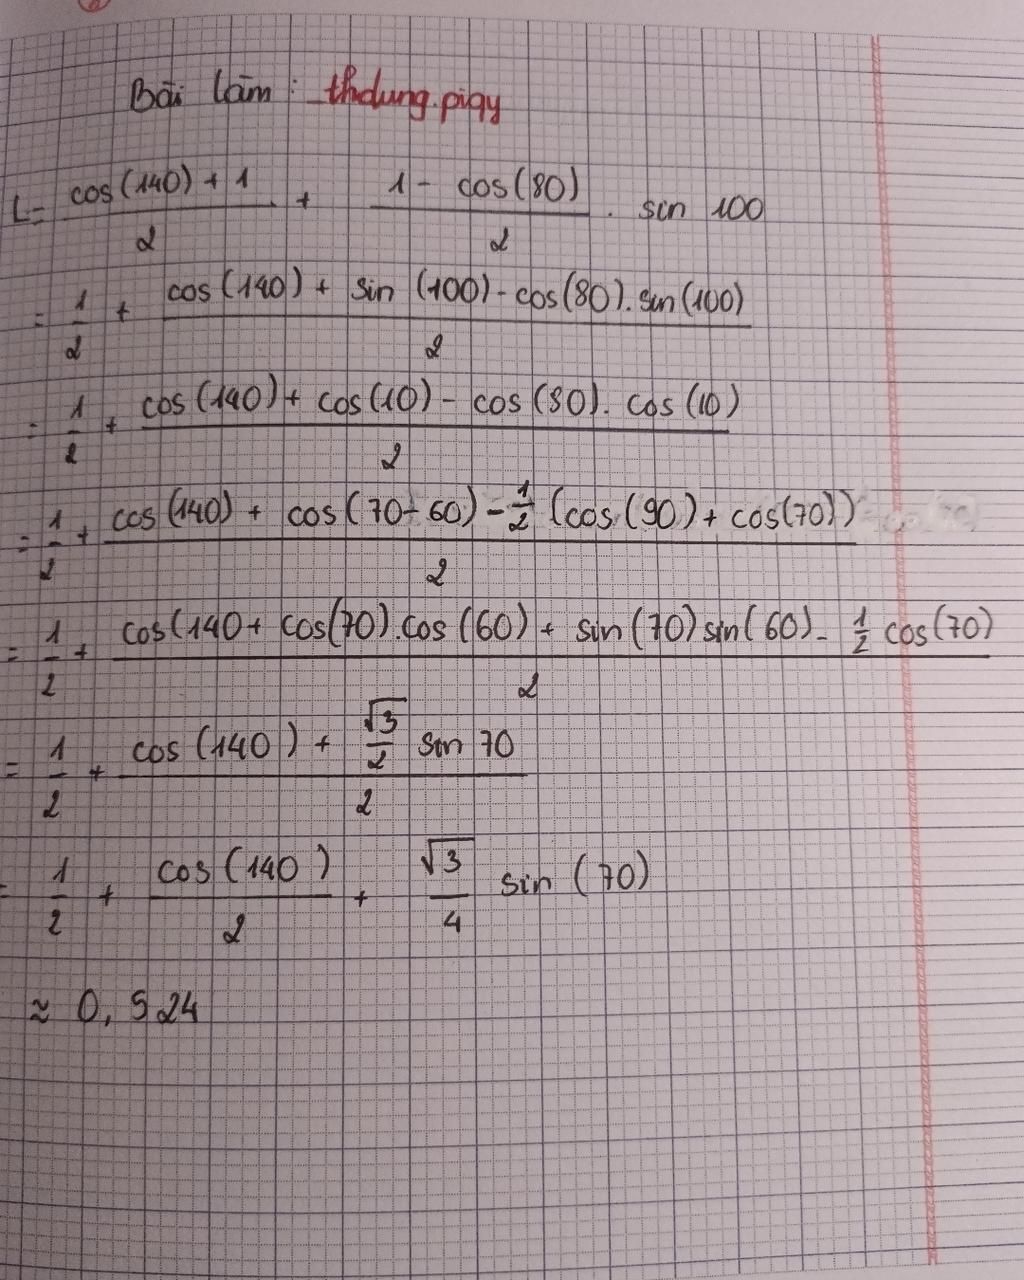 Bài làm : thdung.piqy
L = \frac{cos(140) + 1}{2} + \frac{1 - cos(80)}{2} . sin 100
= \frac{1}{2} + \frac{cos(140) + sin (100) - cos(80). sin(100)}{2}
= \frac{1}{2} + \frac{cos(140) + cos(10) - cos(80). cos(10)}{2}
= \frac{1}{2} + \frac{cos(140) + cos(70-60) - \frac{1}{2} (cos(90) + cos(70))}{2}
= \frac{1}{2} + \frac{cos(140 + cos(70).cos(60) + sin(70)sin(60) - \frac{1}{2} cos(70)}{2}
= \frac{1}{2} + \frac{cos(140) + \frac{\sqrt{3}}{2} sin 70}{2}
= \frac{1}{2} + \frac{cos(140)}{2} + \frac{\sqrt{3}}{4} sin (70)
≈ 0,524